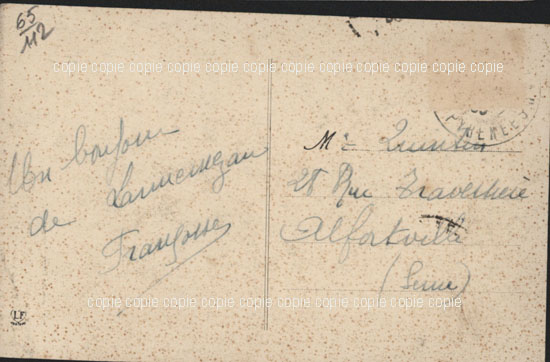 65
112
copie copie copie copie copie copie copie copie
copie copie copie copie copie copie copie copie
Un bonjour
de Lannemezan
Françoise
Mr Quentin
28 Rue Traversière
Alfortville
(Seine)
copie copie copie copie copie copie copie copie
LF